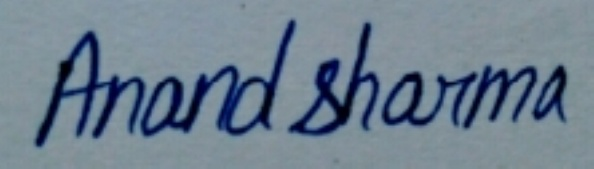 Anand sharma